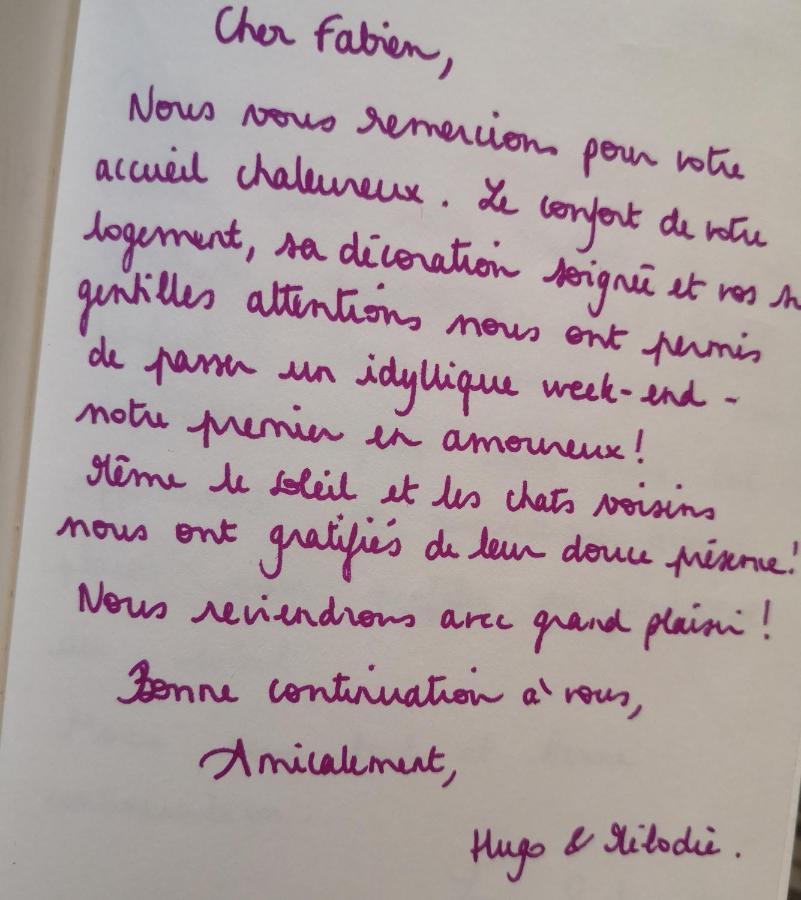 Cher Fabien,
Nous vous remercions pour votre
accueil chaleureux. Le confort de votre
logement, sa décoration soignée et vos
gentilles attentions nous ont permis
de passer un idyllique week-end -
notre premier en amoureux !
Même le soleil et les chats voisins
nous ont gratifiés de leur douce présence !
Nous reviendrons avec grand plaisir !
Bonne continuation à vous,
Amicalement,
Hugo & Mélodie.